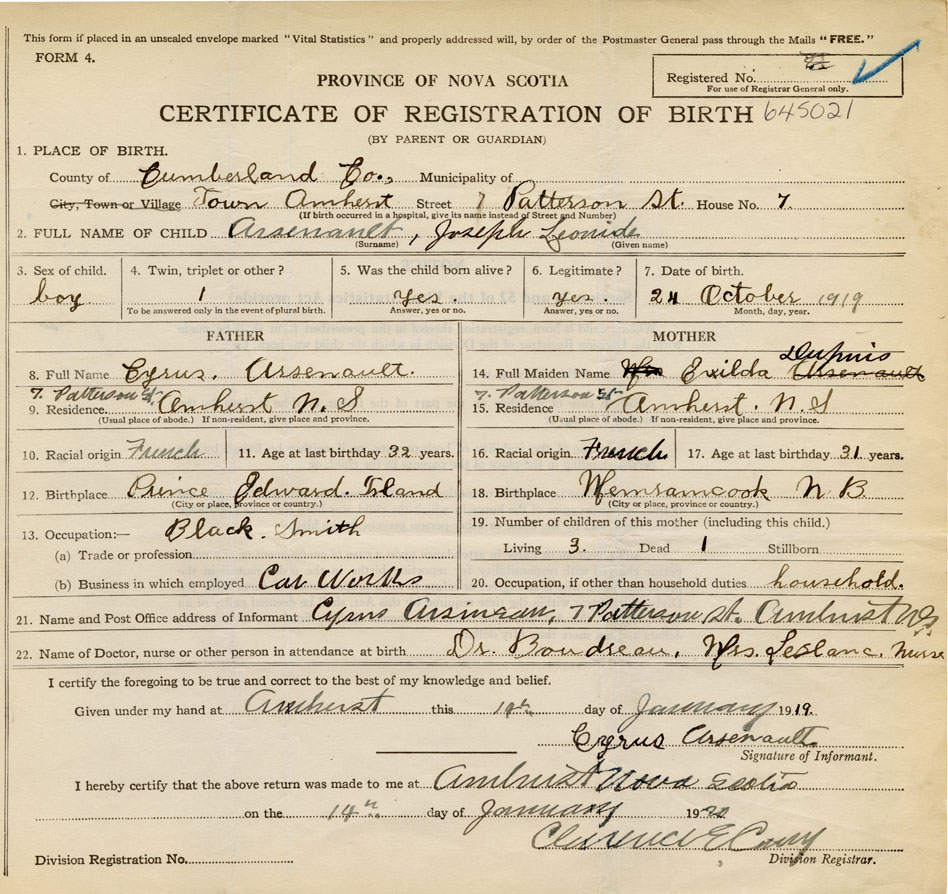 This form if placed in an unsealed envelope marked "Vital Statistics" and properly addressed will, by order of the Postmaster General pass through the Mails "FREE."
FORM 4.
PROVINCE OF NOVA SCOTIA
Registered No.
For use of Registrar General only.
CERTIFICATE OF REGISTRATION OF BIRTH 645021
(BY PARENT OR GUARDIAN)
1. PLACE OF BIRTH.
County of Cumberland Co., Municipality of
City, Town or Village Town Amherst Street 7 Patterson St. House No. 7.
(If birth occurred in a hospital, give its name instead of Street and Number)
2. FULL NAME OF CHILD Arsenault, Joseph Leonide
(Surname) (Given name)
3. Sex of child. 4. Twin, triplet or other? 5. Was the child born alive? 6. Legitimate? 7. Date of birth.
boy 1 Yes yes. 24 October 1919
To be answered only in the event of plural birth. Answer, yes or no. Answer, yes or no. Month, day, year.
FATHER MOTHER
8. Full Name Cyrus. Arsenault. 14. Full Maiden Name Exilda Arsenault Dupuis
7. Patterson St. 7. Patterson St.
9. Residence. Amherst N.S 15. Residence Amherst. N.S
(Usual place of abode.) If non-resident, give place and province. (Usual place of abode.) If non-resident, give place and province.
10. Racial origin French 11. Age at last birthday 32 years. 16. Racial origin French 17. Age at last birthday 31 years.
12. Birthplace Prince Edward. Island 18. Birthplace Memramcook N B
(City or place, province or country.) (City or place, province or country.)
13. Occupation:— Black. Smith 19. Number of children of this mother (including this child.)
(a) Trade or profession Living 3. Dead 1 Stillborn
(b) Business in which employed Car Works 20. Occupation, if other than household duties household.
21. Name and Post Office address of Informant Cyrus Arsineau, 7 Patterson St. Amherst NS
22. Name of Doctor, nurse or other person in attendance at birth Dr. Boudreau, Mrs. Leblanc. Nurse
I certify the foregoing to be true and correct to the best of my knowledge and belief.
Given under my hand at Amherst this day of January 1919.
Cyrus Arsenault
Signature of Informant.
I hereby certify that the above return was made to me at Amherst Nova Scotia
on the 14th day of January 1920
Clarence E
Division Registration No. Division Registrar.